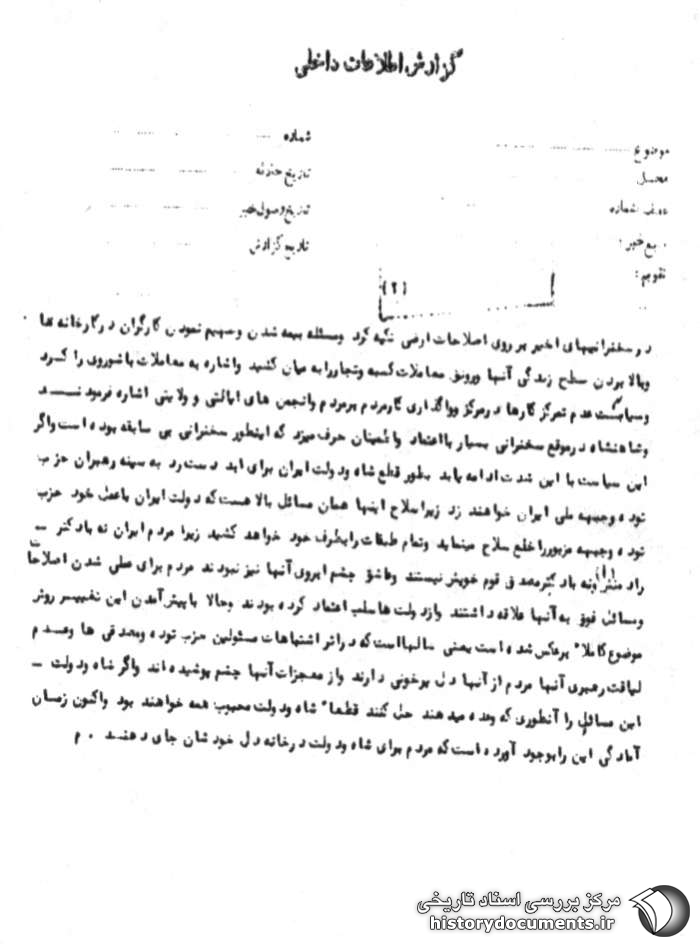 گزارش اطلاعات داخلی
موضوع
شماره
محل
تاریخ حادثه
شماره
تاریخ وصول خبر
منبع خبر :
تاریخ گزارش
تقویم :
(۲)
در سخنرانیهای اخیر بر روی اصلاحات ارضی تکیه کرد ومسئله بیمه شدن وسهیم نمودن کارگران در کارخانه ها
وبالا بردن سطح زندگی آنها ورونق معاملات کسبه وتجاررا به میان کشید واشاره به معاملات با شوروی را کرد
وسیاست عدم تمرکز کارها در مرکز وواگذاری کار مردم بمردم وانجمن های ایالتی و ولایتی اشاره فرمودند
وشاهنشاه در موقع سخنرانی بسیار با اعتماد واطمینان حرف میزد که اینطور سخنرانی بی سابقه بوده است واگر
این سیاست با این شدت ادامه یابد بطور قطع شاه ودولت ایران برای ابد دست رد به سینه رهبران حزب
توده وجبهه ملی ایران خواهند زد زیرا سلاح اینها همان مسائل بالا هست که دولت ایران با عمل خود حزب
توده وجبهه مزبور را خلع سلاح مینماید وتمام طبقات را بطرف خود خواهد کشید زیرا مردم ایران نه با دکتر –
رادمنش ونه با دکتر مصدق قوم خویش نیستند وعاشق چشم ابروی آنها نیز نبودند مردم برای عملی شدن اصلاحات
ومسائل فوق به آنها علاقه داشتند واز دولت ها سلب اعتماد کرده بودند وحالا با پیش آمدن این تغییر روش
موضوع کاملاً برعکس شده است یعنی سالها است که در اثر اشتباهات مسئولین حزب توده ومصدقی ها وعدم
لیاقت رهبری آنها مردم از آنها دل پرخونی دارند واز معجزات آنها چشم پوشیده اند واگر شاه ودولت –
این مسائل را آنطوری که وعده میدهند حل کنند قطعاً شاه ودولت محبوب همه خواهند بود واکنون زمان
آمادگی این را بوجود آورده است که مردم برای شاه ودولت در خانه دل خودشان جای دهند . م
مرکز بررسی اسناد تاریخی
historydocuments.ir